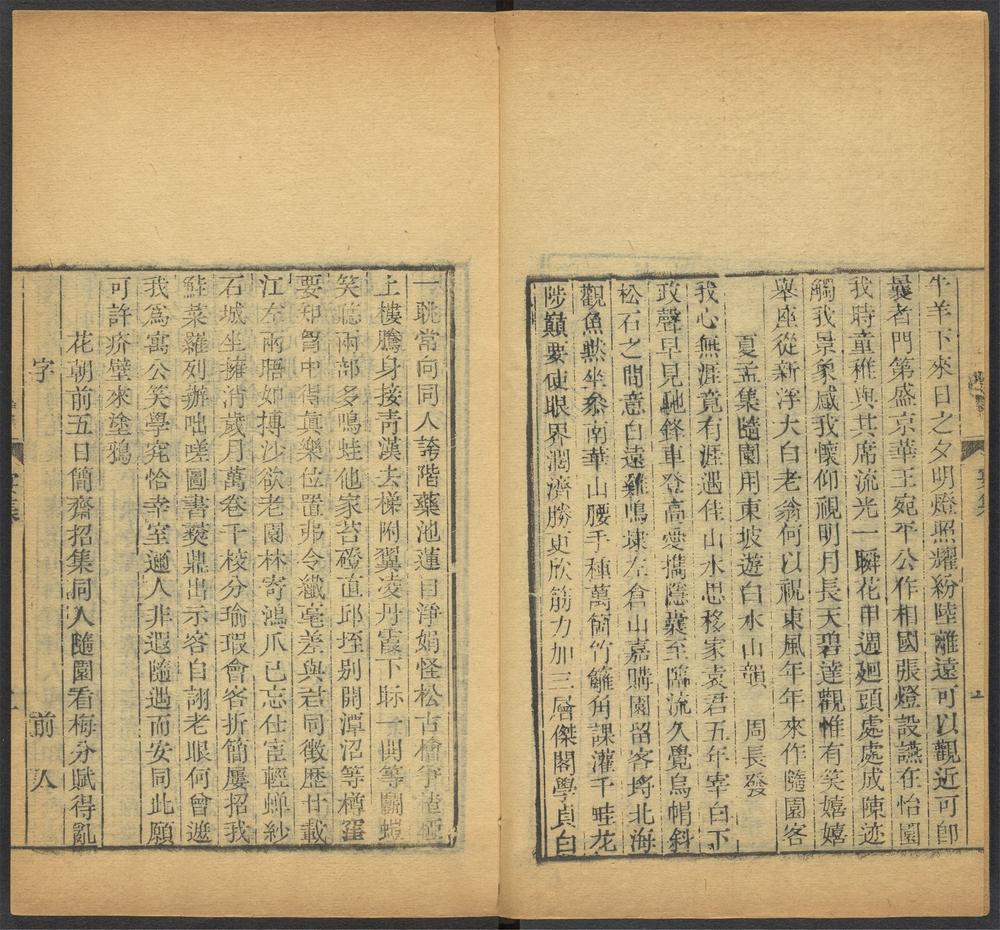 牛羊下來日之夕明燈照耀紛陸離遠可以觀近可卽
曩者門第盛京華王宛平公作相國張燈設讌在怡園
我時童稚與其席流光一瞬花甲週廻頭處處成陳迹
觸我景象感我懷仰視明月長天碧達觀惟有笑嬉嬉
舉座從新浮大白老翁何以祝東風年年來作隨園客
夏孟集隨園用東坡遊白水山韻 周長發
我心無涯竟有涯遇佳山水思移家袁君五年宰白下
政聲早見馳鋒車登高愛攜隱囊至臨流久覺烏帽斜
松石之間意自遠雞鳴埭左倉山嘉購園留客埒北海
觀魚默坐參南華山腰手種萬箇竹籬角課灌千畦花
陟巔要使眼界濶濟勝更欣筋力加三層傑閣學貞白
一眺常向同人誇階藥池蓮目淨娟怪松古檜爭槎枒
上樓騰身接青漢去梯附翼凌丹霞下眎一閧等鬬螘
笑聽兩部多鳴蛙他家苔磴直邱垤别開潭沼等樽窪
要知胷中得眞樂位置弗令纖毫差與君同徵歷廿載
江左兩膴如摶沙欲老園林寄鴻爪已忘仕宦輕蟬紗
石城坐擁消歲月萬卷千校分瑜瑕會客折簡屢招我
鮭菜羅列辦咄嗟圖書彝鼎出示客自詡老眼何曾遮
我爲寓公笑學究恰幸室邇人非遐隨遇而安同此願
可許疥壁來塗鴉
花朝前五日簡齋招集同人隨園看梅分賦得亂
字 前人